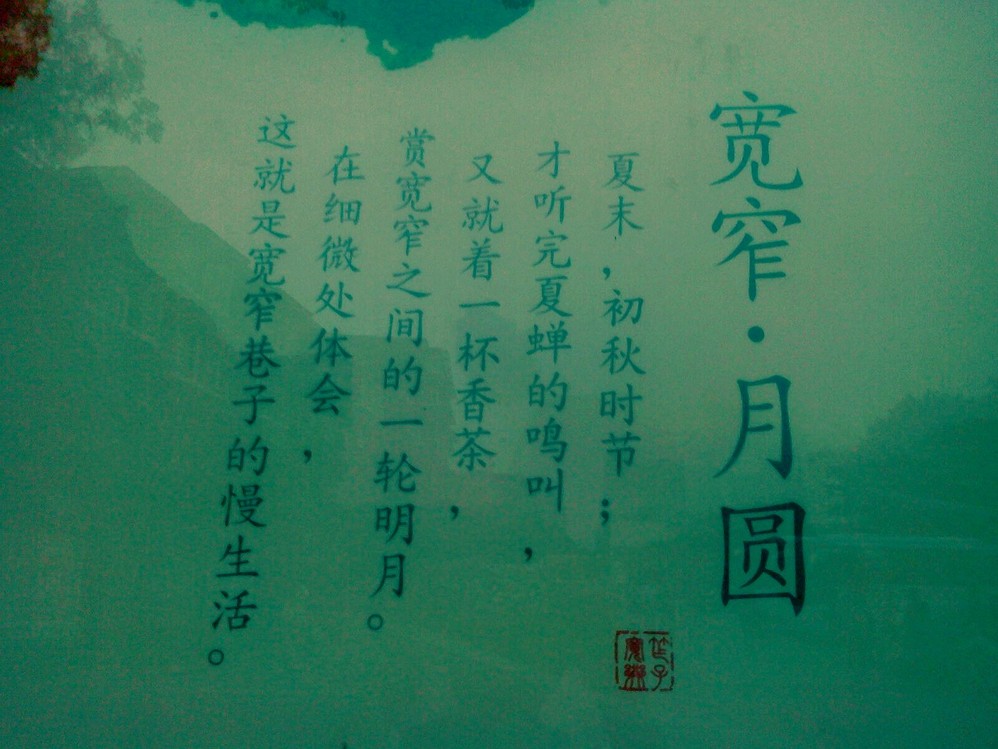 宽窄·月圆
夏末,初秋时节;
才听完夏蝉的鸣叫,
又就着一杯香茶,
赏宽窄之间的一轮明月。
在细微处体会,
这就是宽窄巷子的慢生活。